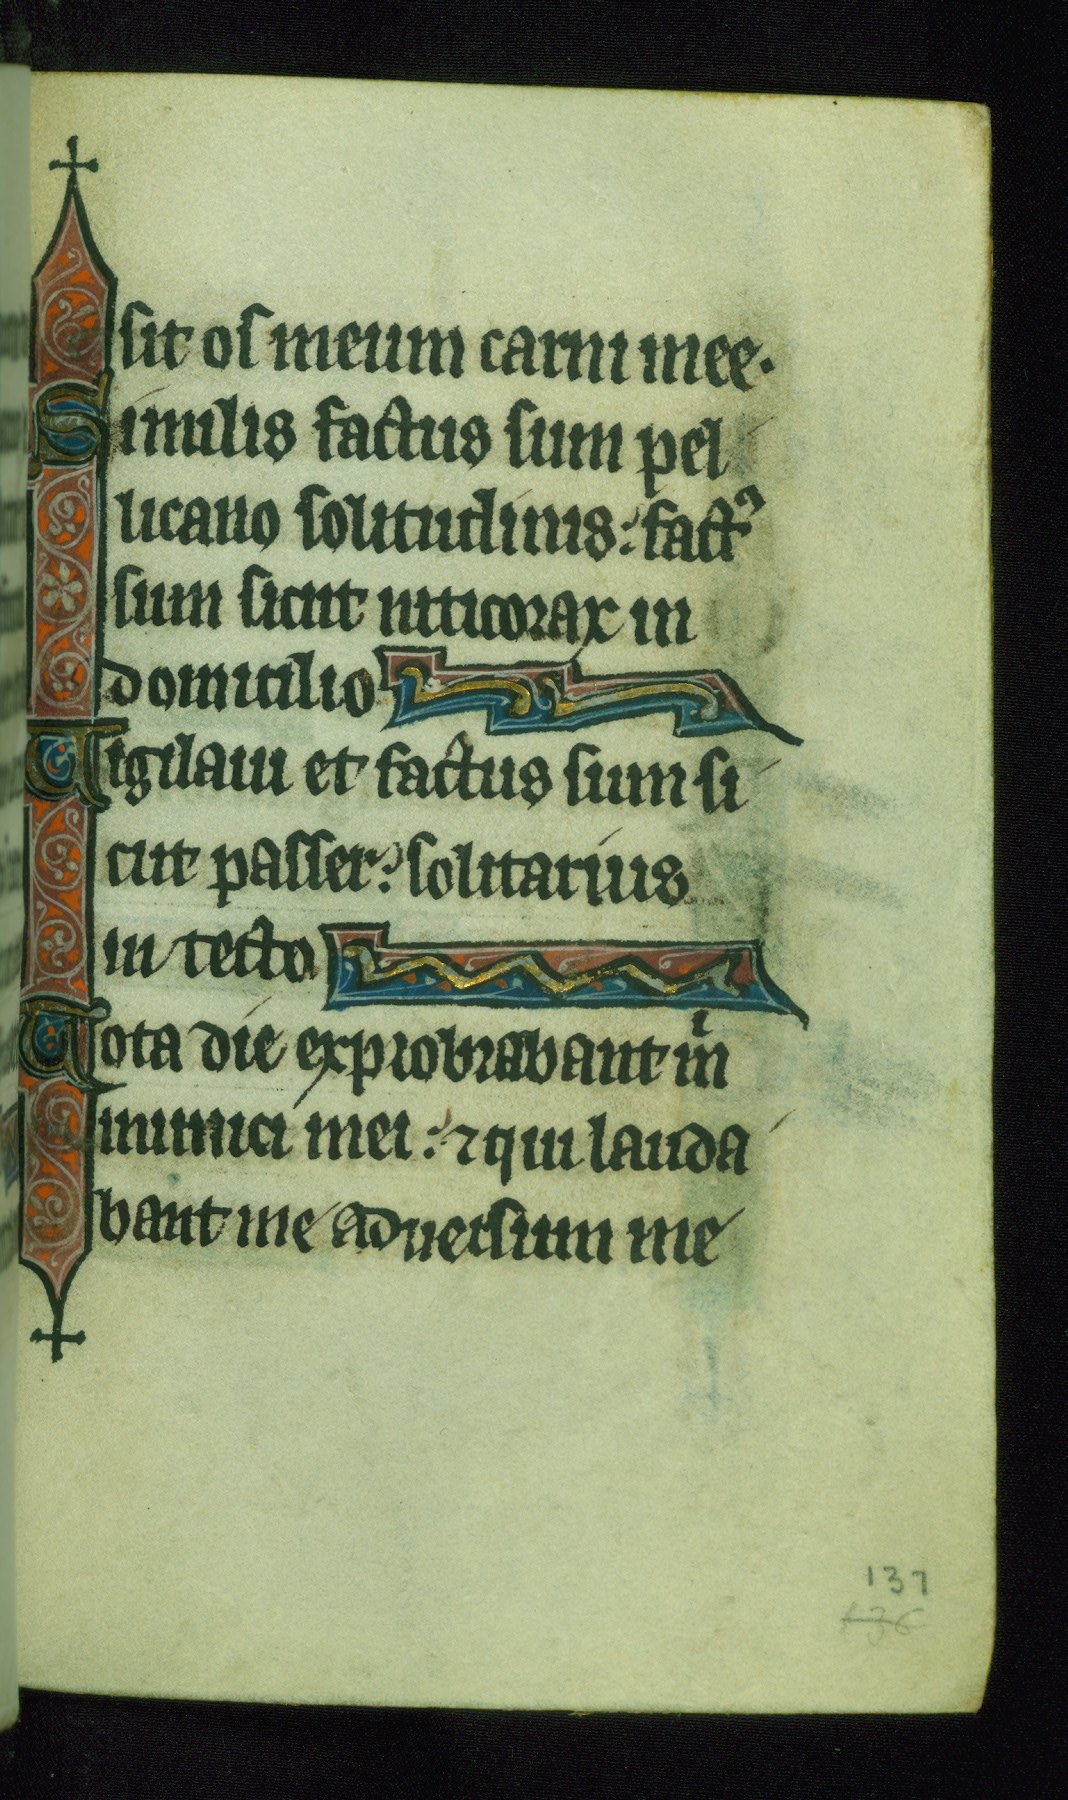 sit os meum carni mee.
Similis factus sum pel
licano solitudinis: factꝰ
sum sicut niticorax in
domicilio
Uigilaui et factus sum si
cut passer: solitarius
in tecto
Tota die exprobrabant mͥ
inimici mei: ⁊ qui lauda
bant me aduersum me
137
136